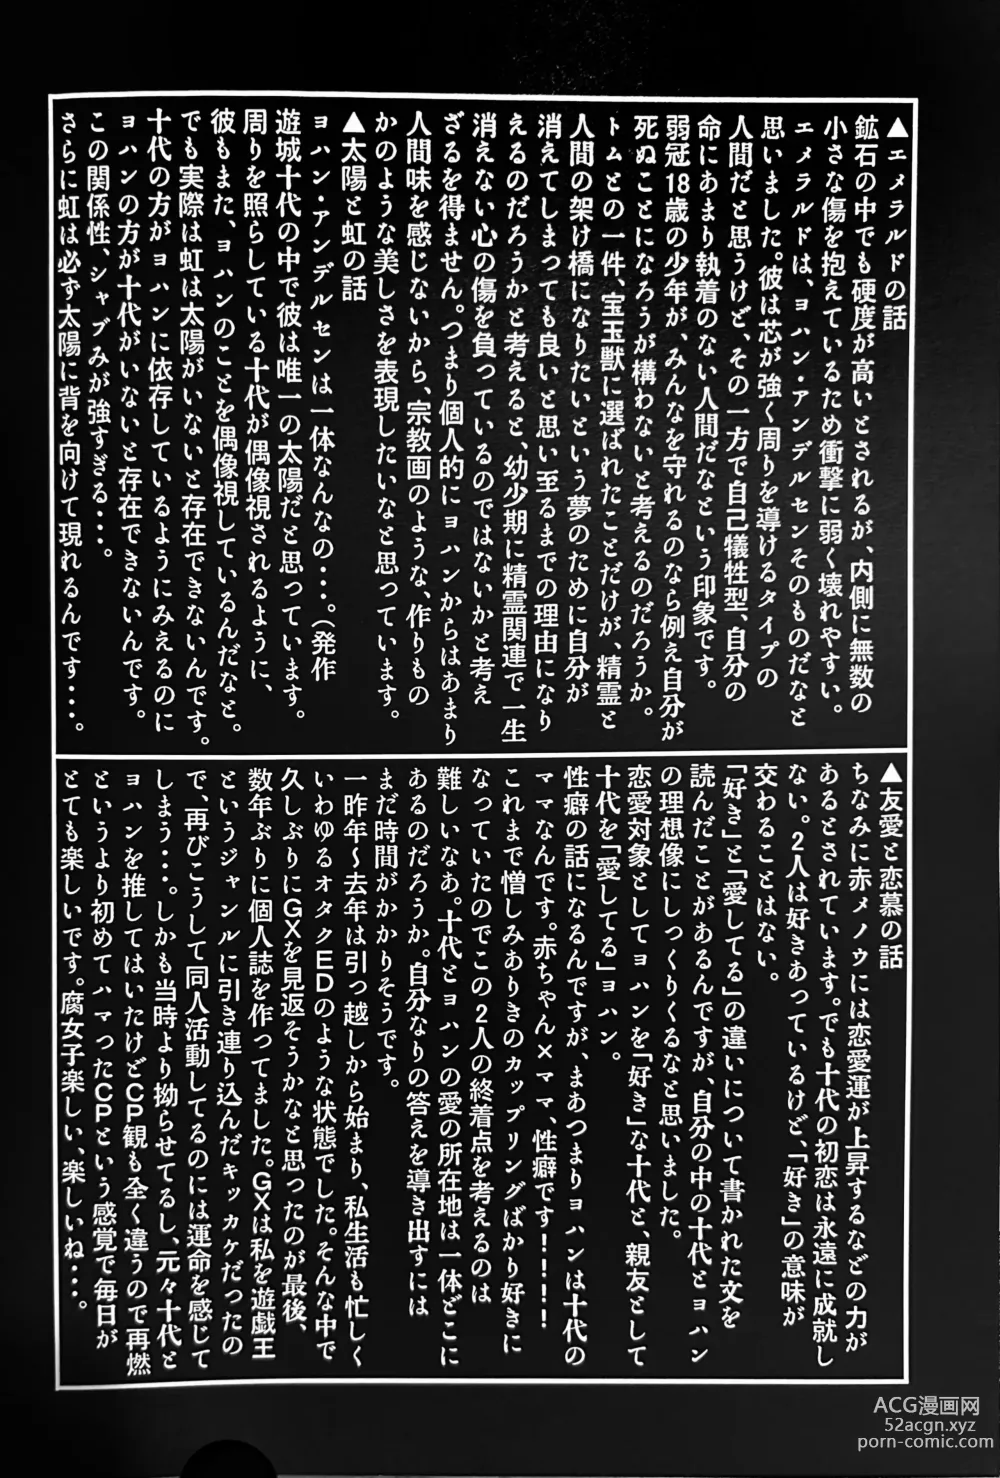 ▲エメラルドの話
鉱石の中でも硬度が高いとされるが、内側に無数の
小さな傷を抱えているため衝撃に弱く壊れやすい。
エメラルドは、ヨハン・アンデルセンそのものだなと
思いました。彼は芯が強く周りを導けるタイプの
人間だと思うけど、その一方で自己犠牲型、自分の
命にあまり執着のない人間だなという印象です。
弱冠18歳の少年が、みんなを守れるのなら例え自分が
死ぬことになろうが構わないと考えるのだろうか。
トムとの一件、宝玉獣に選ばれたことだけが、精霊と
人間の架け橋になりたいという夢のために自分が
消えてしまっても良いと思い至るまでの理由になり
えるのだろうかと考えると、幼少期に精霊関連で一生
消えない心の傷を負っているのではないかと考え
ざるを得ません。つまり個人的にヨハンからはあまり
人間味を感じないから、宗教画のような、作りもの
かのような美しさを表現したいなと思っています。
▲太陽と虹の話
ヨハン・アンデルセンは一体なんなの・・・。(発作
遊城十代の中で彼は唯一の太陽だと思っています。
周りを照らしている十代が偶像視されるように、
彼もまた、ヨハンのことを偶像視しているんだなと。
でも実際は虹は太陽がいないと存在できないんです。
十代の方がヨハンに依存しているようにみえるのに
ヨハンの方が十代がいないと存在できないんです。
この関係性、シャブみが強すぎる・・・。
さらに虹は必ず太陽に背を向けて現れるんです・・・。
▲友愛と恋慕の話
ちなみに赤メノウには恋愛運が上昇するなどの力が
あるとされています。でも十代の初恋は永遠に成就し
ない。2人は好きあっているけど、「好き」の意味が
交わることはない。
「好き」と「愛してる」の違いについて書かれた文を
読んだことがあるんですが、自分の中の十代とヨハン
の理想像にしっくりくるなと思いました。
恋愛対象としてヨハンを「好き」な十代と、親友として
十代を「愛してる」ヨハン。
性癖の話になるんですが、まあつまりヨハンは十代の
ママなんです。赤ちゃん×ママ、性癖です！！！！
これまで憎しみありきのカップリングばかり好きに
なっていたのでこの2人の終着点を考えるのは
難しいなあ。十代とヨハンの愛の所在地は一体どこに
あるのだろうか。自分なりの答えを導き出すには
まだ時間がかかりそうです。
一昨年～去年は引っ越しから始まり、私生活も忙しく
いわゆるオタクEDのような状態でした。そんな中で
久しぶりにGXを見返そうかなと思ったのが最後、
数年ぶりに個人誌を作ってました。GXは私を遊戯王
というジャンルに引き連り込んだキッカケだったの
で、再びこうして同人活動してるのには運命を感じて
しまう・・・。しかも当時より拗らせてるし、元々十代と
ヨハンを推してはいたけどCP観も全く違うので再燃
というより初めてハマったCPという感覚で毎日が
とても楽しいです。腐女子楽しい、楽しいね・・・。
ACG漫画网
52acgn.xyz
porn-comic.com